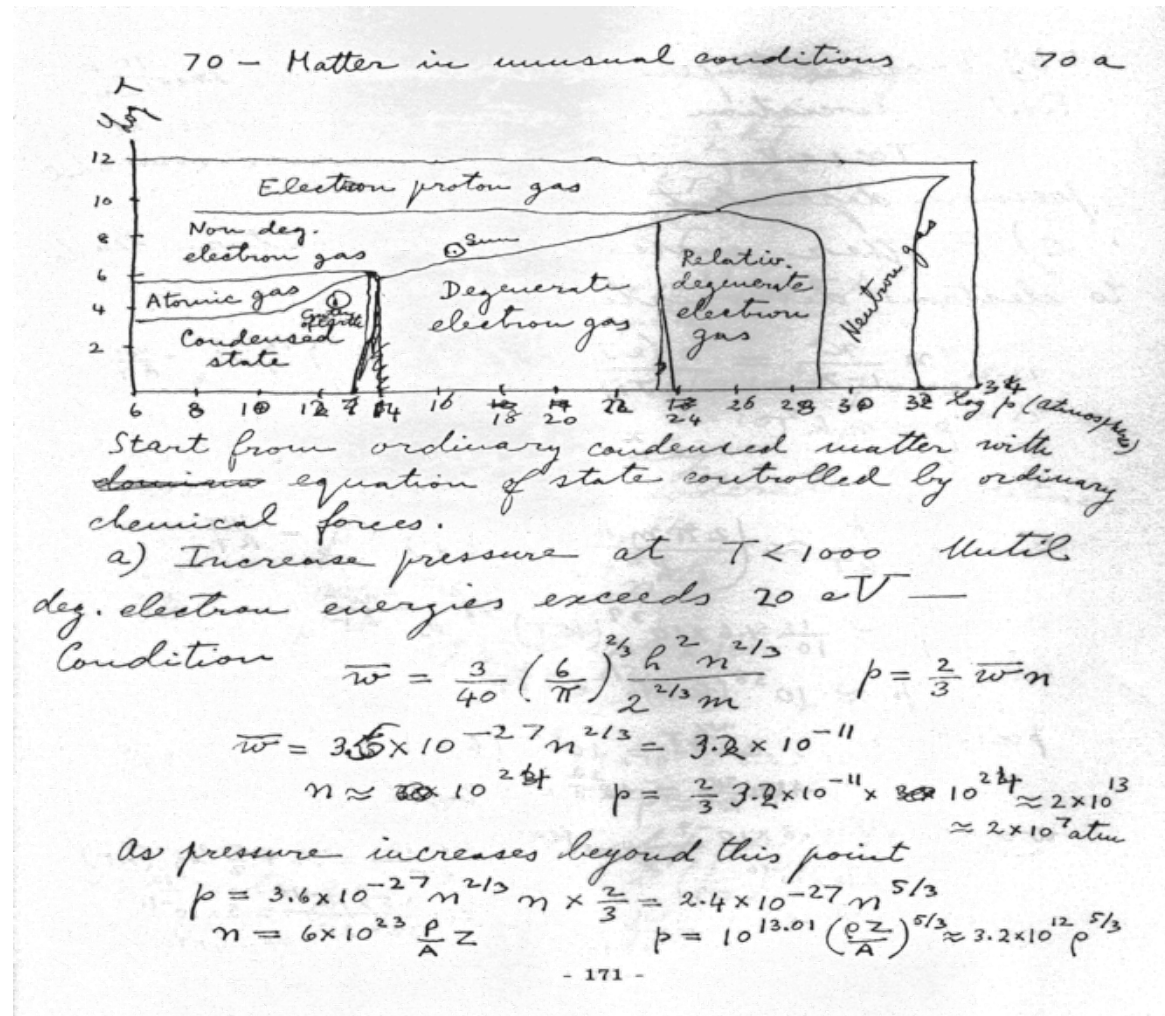 70 - Matter in unusual conditions 70 a
Log T
12
Electron proton gas
10
Non deg.
electron gas
8
Sun
6
Atomic gas
Degenerate
electron gas
Relativ.
degenerate
electron
gas
Neutron gas
4
Center
of Earth
Condensed
state
2
6 8 10 12 14 16 18 20 22 24 26 28 30 32 34 Log p (atmospheres)
Start from ordinary condensed matter with
equation of state controlled by ordinary
chemical forces.
a) Increase pressure at T < 1000 Until
deg. electron energies exceeds 20 eV —
Condition w̄ = 3/40 (6/π)^2/3 h^2 n^2/3 / 2^2/3 m p = 2/3 w̄ n
w̄ = 3.6 × 10^-27 n^2/3 = 3.2 × 10^-11
n ≈ 10^24 p = 2/3 3.2 × 10^-11 × 10^24 ≈ 2 × 10^13
≈ 2 × 10^7 atm
As pressure increases beyond this point
p = 3.6 × 10^-27 n^2/3 n × 2/3 = 2.4 × 10^-27 n^5/3
n = 6 × 10^23 ρ/A Z p = 10^13.01 (ρZ/A)^5/3 ≈ 3.2 × 10^12 ρ^5/3
- 171 -